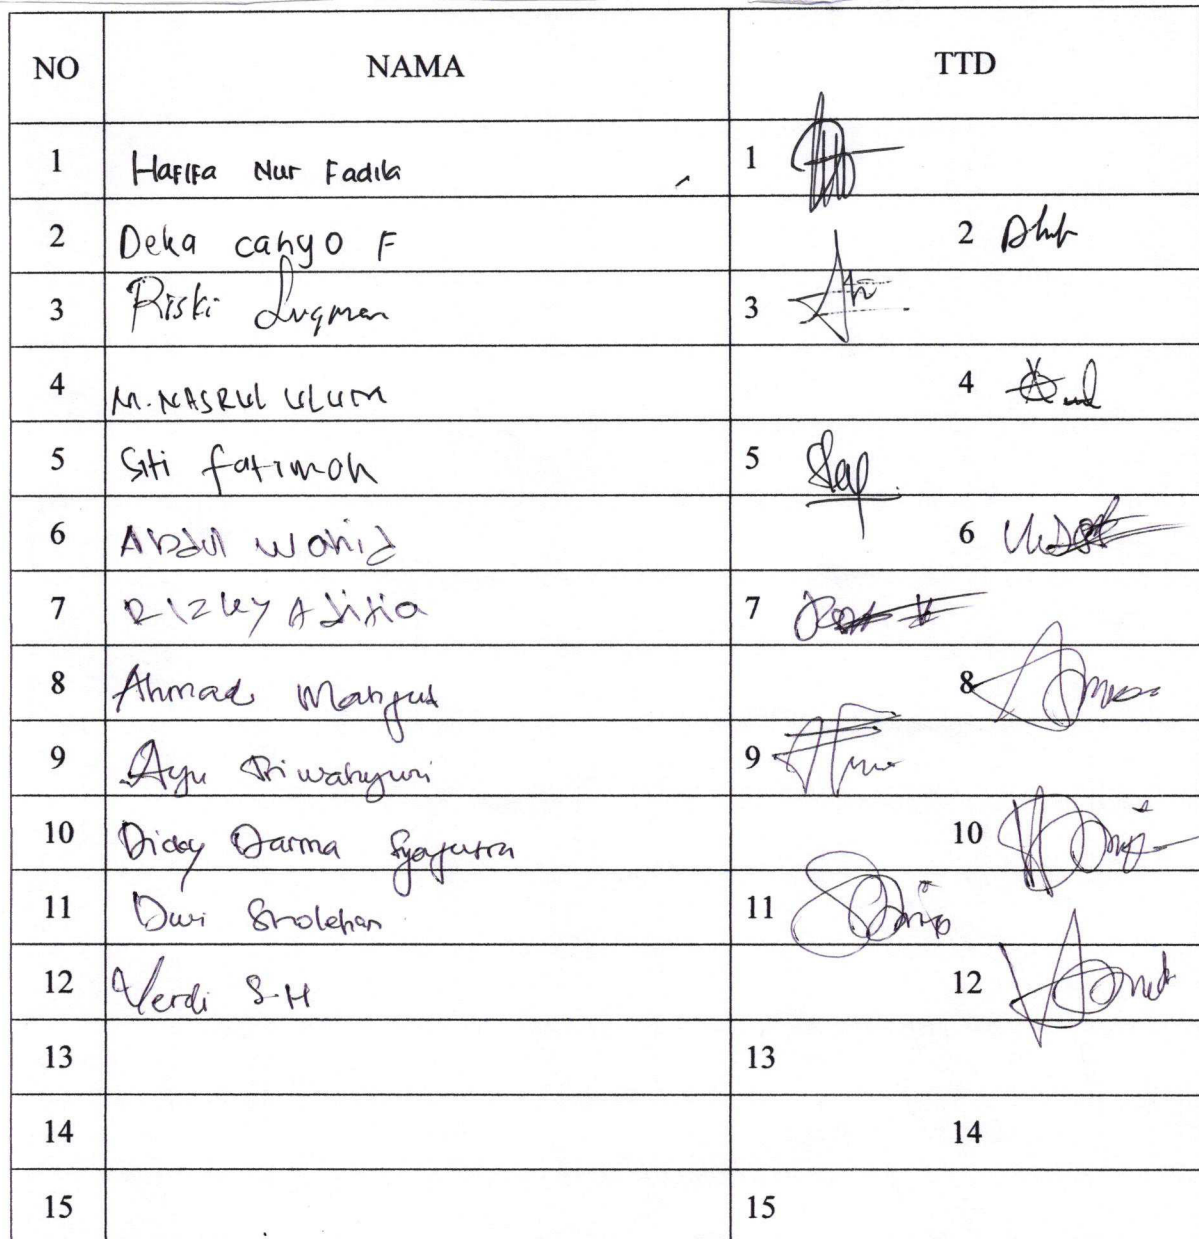 NO NAMA TTD
1 Hafifa Nur Fadila 1
2 Deka cahyo F 2
3 Riski Luqman 3
4 M. NASRUL ULUM 4
5 Siti fatimah 5
6 Abdul Wahid 6
7 Rizky Aditia 7
8 Ahmad 8
9 Ayu Tri wahyuni 9
10 Dicky Darma 10
11 Dwi Sholehan 11
12 Verdi S.H 12
13 13
14 14
15 15